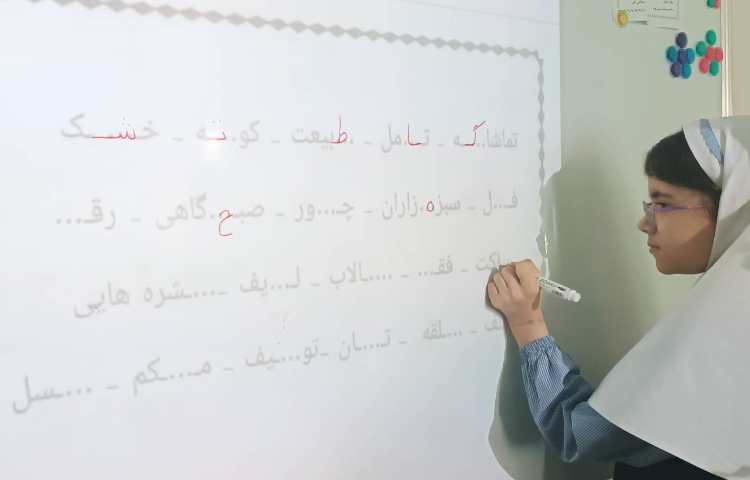 تماشاگـ..ـه - تـا.مل - .طبیعت - کو.تـه - خـشـک
فـ...ل - سبز.ه.زاران - چـ...ور - صبـ.ح.گاهی - رقـ...
ـاکت - فقـ... - ....الاب - لـ...یف - ....شره هایی
ـف - ...لقه - تـ....ان - تو...یف - مـ....کم - ....سل